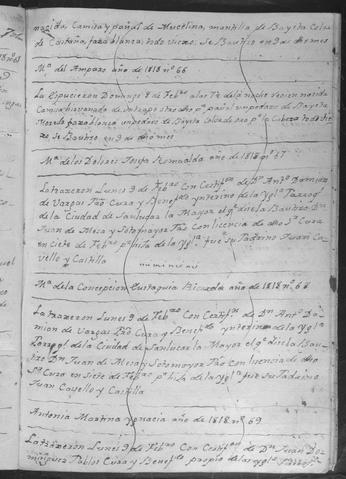 nacida, Camisa y pañal de Muselina, mantilla de Bayeta Color
de Castaña, faxa blanca, todo viexo. Se Bautizo en 9 de dho mes
Mª del Amparo año de 1818 nº 66
La expucieron Domingo 8 de Febº a las de la noche recien nacida
Camisa un pedaso de Bayeta
faxa blanca un pedaso de Bayeta Color de a la Cabeza todo vie
xo, se Bautizo en 9 de dho mes
Mª de los Dolores Josefa Romualda año de 1818 nº 67
La traxeron Lunes 9 de Febro con Certifon de Dn Antº Damian
de Vargas Pro Cura y Benefdo ynterino de la Ygla Parroql
de la Ciudad de Sanlucar la Mayor el qe dice la Bautizo Dn
Juan de Mesa y Sotomayor Pro con licencia de dho Sr Cura
en siete de Febro pr hixa de la Ygla fue su Padrino Juan Ca
yello y Castilla
Mª de la Concepcion Eustaquia Ricarda año de 1818 nº 68
La traxeron Lunes 9 de Febro Con Certifon de Dn Antº Da
mian de Vargas Pro Cura y Benefdo ynterino de la Ygla
Parroql de la Ciudad de Sanlucar la Mayor el qe dice la Bau
tizo Dn Juan de Mesa y Sotomayor Pro con licencia de dho
Sr Cura en siete de Febro pr hixa de la Ygla fue su Padrino
Juan Cayello y Castilla
Antonia Martina Ygnacia año de 1818 nº 69
La traxeron Lunes 9 de Febro Con Certifon de Dn Juan Do
minguez Pablos Cura y Benefdo propio de la Ygla Parroql